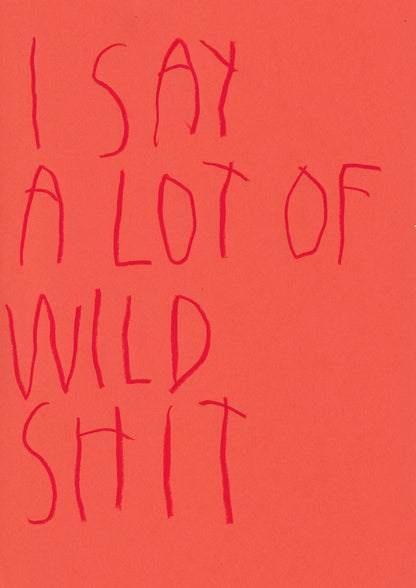 I SAY
A LOT OF
WILD
SHIT